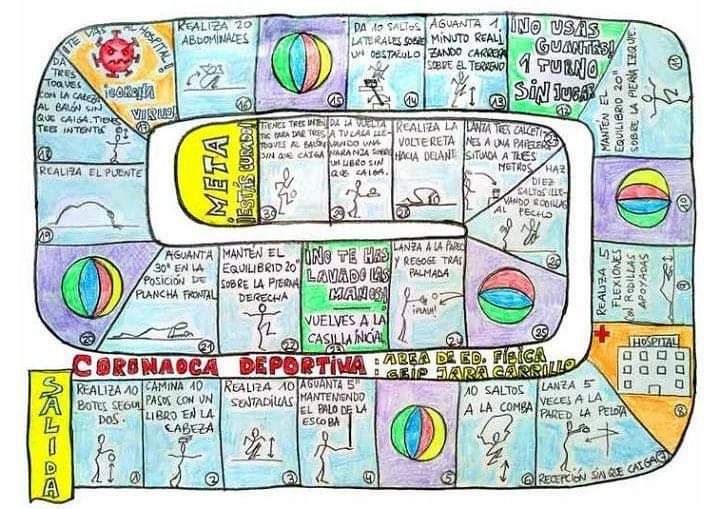 SALIDA
REALIZA 10
BOTES SEGUI
DOS.
1
CAMINA 10
PASOS CON UN
LIBRO EN LA
CABEZA
2
REALIZA 10
SENTADILLAS
3
AGUANTA 5"
MANTENIENDO
EL PALO DE LA
ESCOBA
4
5
10 SALTOS
A LA COMBA
6
LANZA 5
VECES A LA
PARED LA PELOTA
RECEPCIÓN SIN QUE CAIGA
7
HOSPITAL
8
REALIZA 5
FLEXIONES
CON RODILLAS
APOYADAS
9
10
MANTÉN EL
EQUILIBRIO 20"
SOBRE LA PIERNA IZQUIE.
11
¡NO USAS
GUANTES!
1 TURNO
SIN JUGAR
12
AGUANTA 1
MINUTO REALI
ZANDO CARRERA
SOBRE EL TERRENO
13
DA 10 SALTOS
LATERALES SOBRE
UN OBSTÁCULO
14
15
REALIZA 20
ABDOMINALES
16
¡TE VAS AL HOSPITAL!
¡CORONA
VIRUS!
17
DA TRES
TOQUES
CON LA CABEZA
AL BALÓN SIN
QUE CAIGA. TIENES
TRES INTENTOS
18
REALIZA EL PUENTE
19
20
AGUANTA
30" EN LA
POSICIÓN DE
PLANCHA FRONTAL
21
MANTÉN EL
EQUILIBRIO 20"
SOBRE LA PIERNA
DERECHA
22
¡NO TE HAS
LAVADO LAS
MANOS!
VUELVES A LA
CASILLA INICIAL
23
LANZA A LA PARED
Y RECOGE TRAS
PALMADA
¡PLASH!
24
25
HAZ
DIEZ
SALTOS LLE-
VANDO RODILLAS
AL PECHO
26
LANZA TRES CALCETI
NES A UNA PAPELERA
SITUADA A TRES
METROS
REALIZA LA
VOLTERETA
HACIA DELANTE
28
DA LA VUELTA
A TU CASA LLE-
VANDO UNA
NARANJA SOBRE
UN LIBRO SIN
QUE CAIGA.
29
TIENES TRES INTEN
TOS PARA DAR TRES
TOQUES AL BALÓN
SIN QUE CAIGA
30
META
¡ESTÁS CURADO!
CORONAOCA DEPORTIVA: ÁREA DE ED. FÍSICA
: CEIP JARA CARRILLO